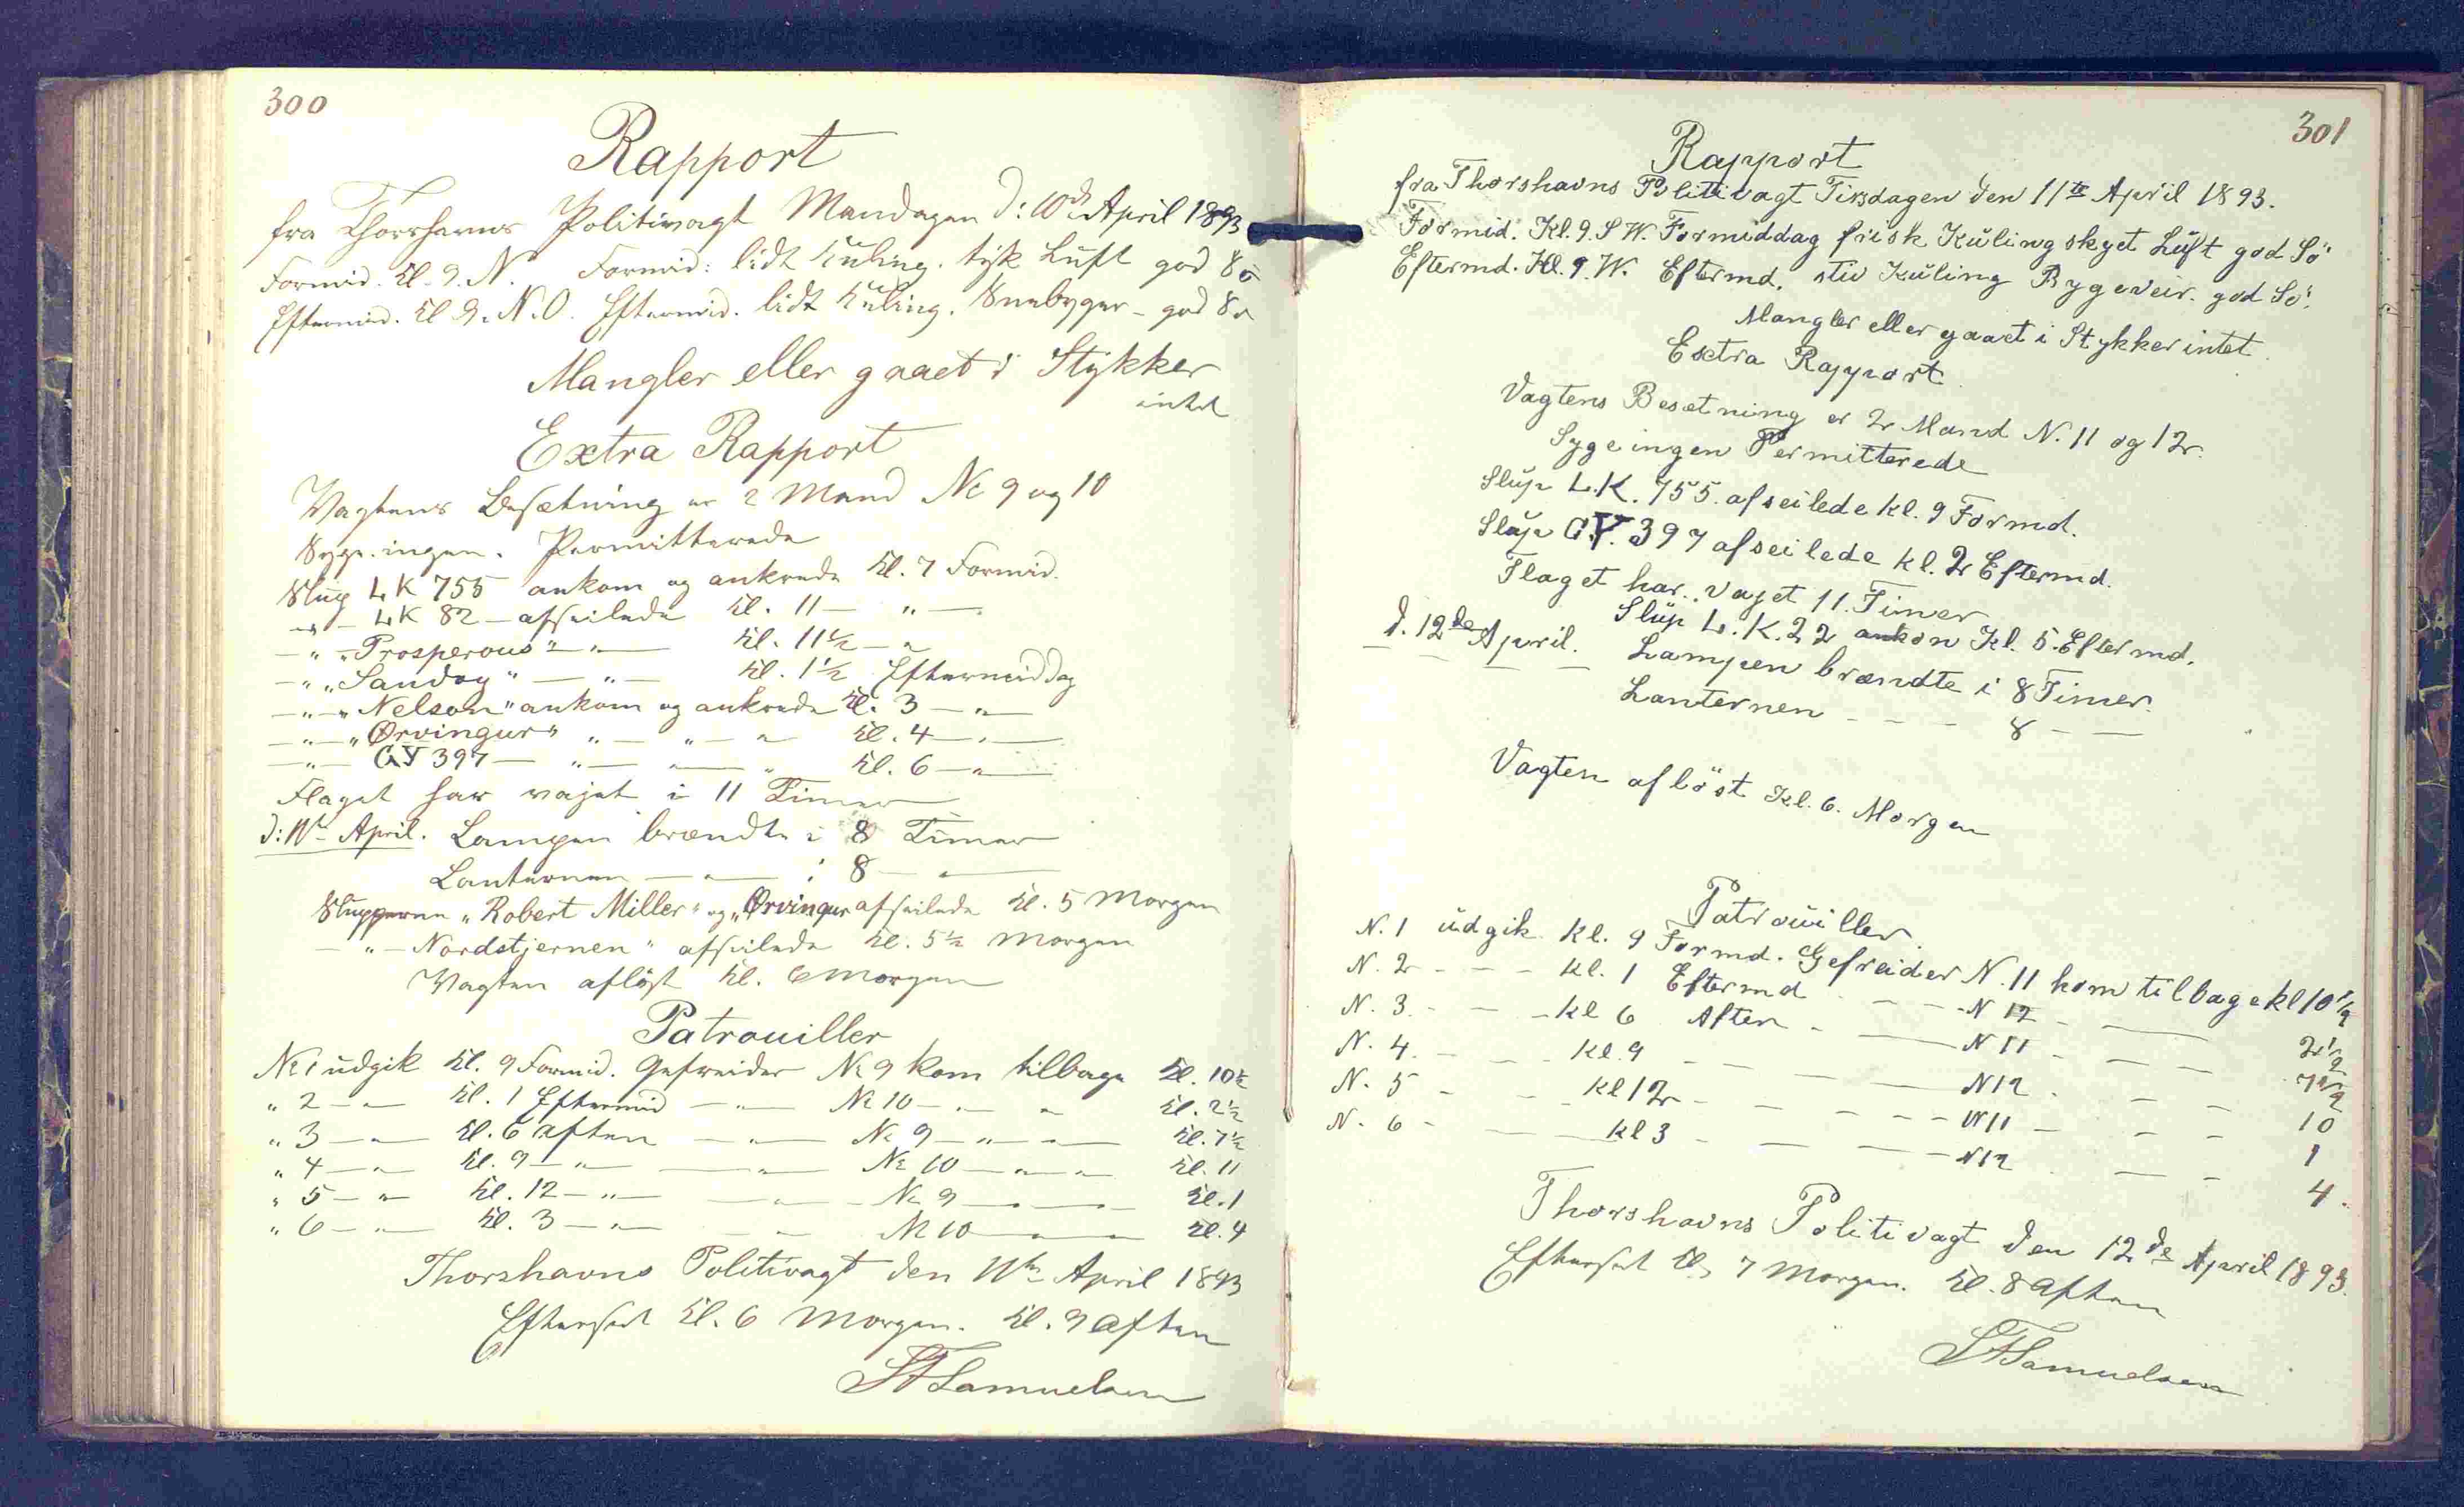 300
Rapport
fra Thorshavns Politivagt Mandagen d: 10de April 1893
Formid. Kl. 9. N. Formid: lidt Kuling. tyk Luft god Sø
Eftermid. Kl 9. N.O. Eftermid. lidt Kuling. Snebyger - god Sø
Mangler eller gaaet i Stykker
intet
Extra Rapport
Vagtens Besætning er 2 Mand No 9 og 10
Syge. ingen. Permitterede
Slup LK 755 ankom og ankrede Kl. 7 Formid.
-"- LK 82 - afseilede Kl. 11 - " -
-"- "Prosperous" - " - Kl. 11½ - "
-"- "Sandoy" - " - Kl. 1½ Eftermiddag
-"- "Nelson" ankom og ankrede Kl. 3 - " -
-"- "Ørvingur" " - " - " Kl. 4 - " -
-"- GY 397 - " - " - " Kl. 6 - " -
Flaget har vajet i 11 Timer
d: 11te April. Lampen brændte i 8 Timer
Lanternen - " - i 8 - " -
Slupperne "Robert Miller" og "Ørvingur afseilede Kl. 5 Morgen
- " - Nordstjernen" afseilede Kl. 5½ Morgen
Vagten afløst Kl. 6 Morgen
Patrouiller
No 1 udgik Kl. 9 Formid. Gefreider No 9 kom tilbage Kl. 10½
" 2 - " - Kl. 1 Eftermid - " - No 10 - " - " Kl. 2½
" 3 - " - Kl. 6 Aften - " - No 9 - " - " - Kl. 7½
" 4 - " - Kl. 9 - " - - " - No 10 - " - " - Kl. 11
" 5 - " - Kl. 12 - " - - " - No 9 - " - " - Kl. 1
" 6 - " - Kl. 3 - " - - " - No 10 - " - " - Kl. 4
Thorshavns Politivagt den 11te April 1893
Efterset Kl. 6 Morgen. Kl. 9 Aften
Samuelsen
301
Rapport
fra Thorshavns Politivagt Tirsdagen den 11te April 1893.
Formid. Kl. 9. S W. Formiddag frisk Kuling skyet Luft god Sö
Eftermd. Kl. 9. W. Eftermd. stiv Kuling Bygeveir. god Sö.
Mangler eller gaaet i Stykker intet
Extra Rapport
Vagtens Besætning er 2 Mand N. 11 og 12.
Syge ingen Permitterede
Slup L.K. 755. afseilede kl. 9 Formd.
Slup G.Y. 397 afseilede kl. 2 Eftermd.
Flaget har. vajet 11. Timer
Slup L. K. 22 ankom Kl. 5. Eftermd.
d. 12de April. Lampen brændte i 8 Timer.
Lanternen - - - 8 - -
Vagten aflöst Kl. 6. Morgen
Patrouiller.
N. 1 udgik kl. 9 Formd. Gefreider N. 11 kom tilbage kl 10½
N. 2 - - - kl. 1 Eftermd - - - N 12 - - 2½
N. 3. - - - kl 6 Aften - - N 11 - - - 7½
N. 4. - - - kl. 9 - - - N 12 - - - 10
N. 5 - - - kl 12 - - - - N 11 - - - 1
N. 6 - - - kl 3 - - - - N 12 - - - 4.
Thorshavns Politivagt den 12de April 1893.
Efterset Kl. 7 Morgen. Kl. 8 Aften
Samuelsen